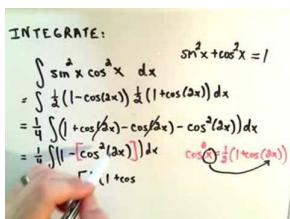 INTEGRATE:
sin²x + cos²x = 1
∫ sin²x cos²x dx
= ∫ ½ (1 - cos(2x)) ½ (1 + cos(2x)) dx
= ¼ ∫ (1 + cos(2x) - cos(2x) - cos²(2x)) dx
= ¼ ∫ (1 - [cos²(2x)]) dx
cos²x = ½ (1 + cos(2x))
(1 + cos